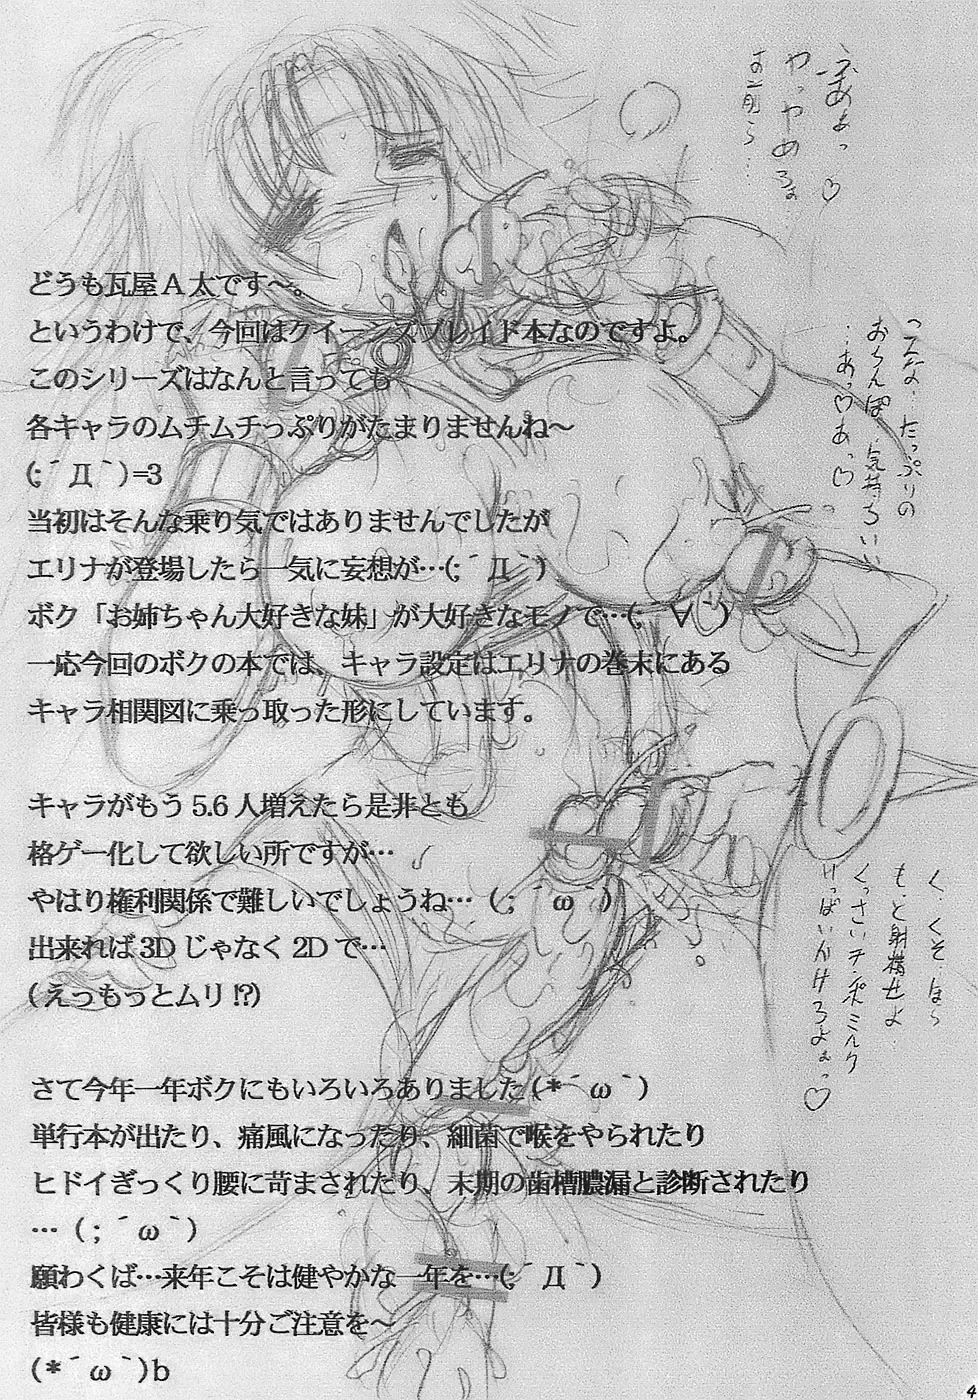 どうも瓦屋A太です～。
というわけで、今回はクイーンズブレイド本なのですよ。
このシリーズはなんと言っても
各キャラのムチムチっぷりがたまりませんね～
(;´Д｀)=3
当初はそんな乗り気ではありませんでしたが
エリナが登場したら一気に妄想が…(;´Д｀)
ボク「お姉ちゃん大好きな妹」が大好きなモノで…(;´∀｀)
一応今回のボクの本では、キャラ設定はエリナの巻末にある
キャラ相関図に乗っ取った形にしています。

キャラがもう5.6人増えたら是非とも
格ゲー化して欲しい所ですが…
やはり権利関係で難しいでしょうね…（;´ω｀）
出来れば3Dじゃなく2Dで…
(えっもっとムリ!?)

さて今年一年ボクにもいろいろありました(*´ω｀)
単行本が出たり、痛風になったり、細菌で喉をやられたり
ヒドイぎっくり腰に苛まされたり、末期の歯槽膿漏と診断されたり
…（;´ω｀）
願わくば…来年こそは健やかな一年を…(;´Д｀)
皆様も健康には十分ご注意を～
(*´ω｀)b
ふあぁっ♡
やっやめろぉ
こんな…たっぷりの
おちんぽ…気持ちいい
…あっ♡あっ♡
く、くそ…ほら
もっと射精せよ
いっぱいかけろよぉっ♡
4